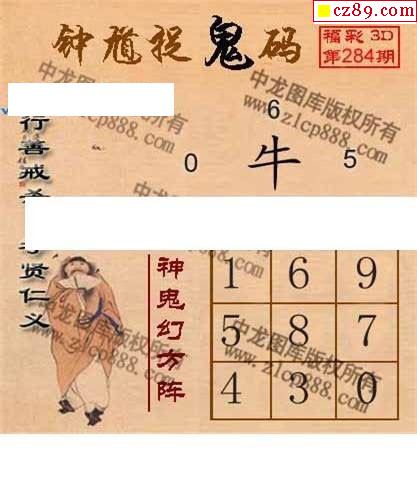 cz89.com
钟馗捉鬼码
福彩3D
第284期
中龙图库版权所有
www.zlcp888.com
6
0 牛 5
行善戒
贤仁义
神鬼幻方阵
1 6 9
5 8 7
4 3 0
中龙图库版权所有
www.zlcp888.com